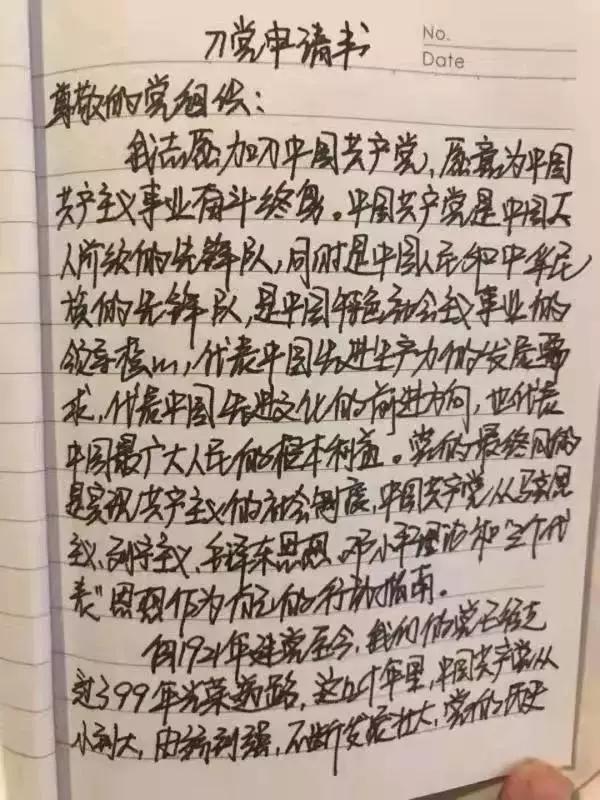 入党申请书
No.
Date
尊敬的党组织:
我志愿加入中国共产党,愿意为中国
共产主义事业奋斗终身。中国共产党是中国工
人阶级的先锋队,同时是中国人民和中华民
族的先锋队,是中国特色社会主义事业的
领导核心,代表中国先进生产力的发展要
求,代表中国先进文化的前进方向,也代表
中国最广大人民的根本利益。党的最终目的
是实现共产主义的社会制度,中国共产党从马克思
主义、列宁主义、毛泽东思想、邓小平理论和“三个代
表”思想作为自己的行动指南。
自1921年建党至今,我们的党已经走
过了99年光荣道路,这几十年里,中国共产党从
小到大,由弱到强,不断发展壮大,党的历史